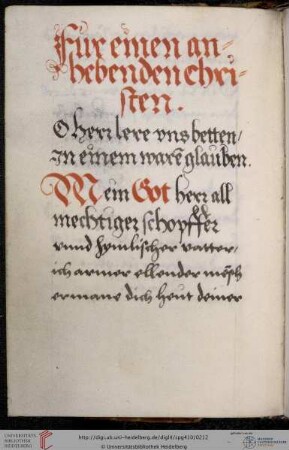 Für einen an-
hebenden chri-
sten.
O herr lere vns betten/
In einem warē glauben.
Mein Got herr all
mechtiger schopffer
vnnd hymlischer vatter/
ich armer ellender mēsch
ermane dich heut deiner
UNIVERSITÄTS-
BIBLIOTHEK
HEIDELBERG
http://digi.ub.uni-heidelberg.de/diglit/cpg4910/0212
© Universitätsbibliothek Heidelberg